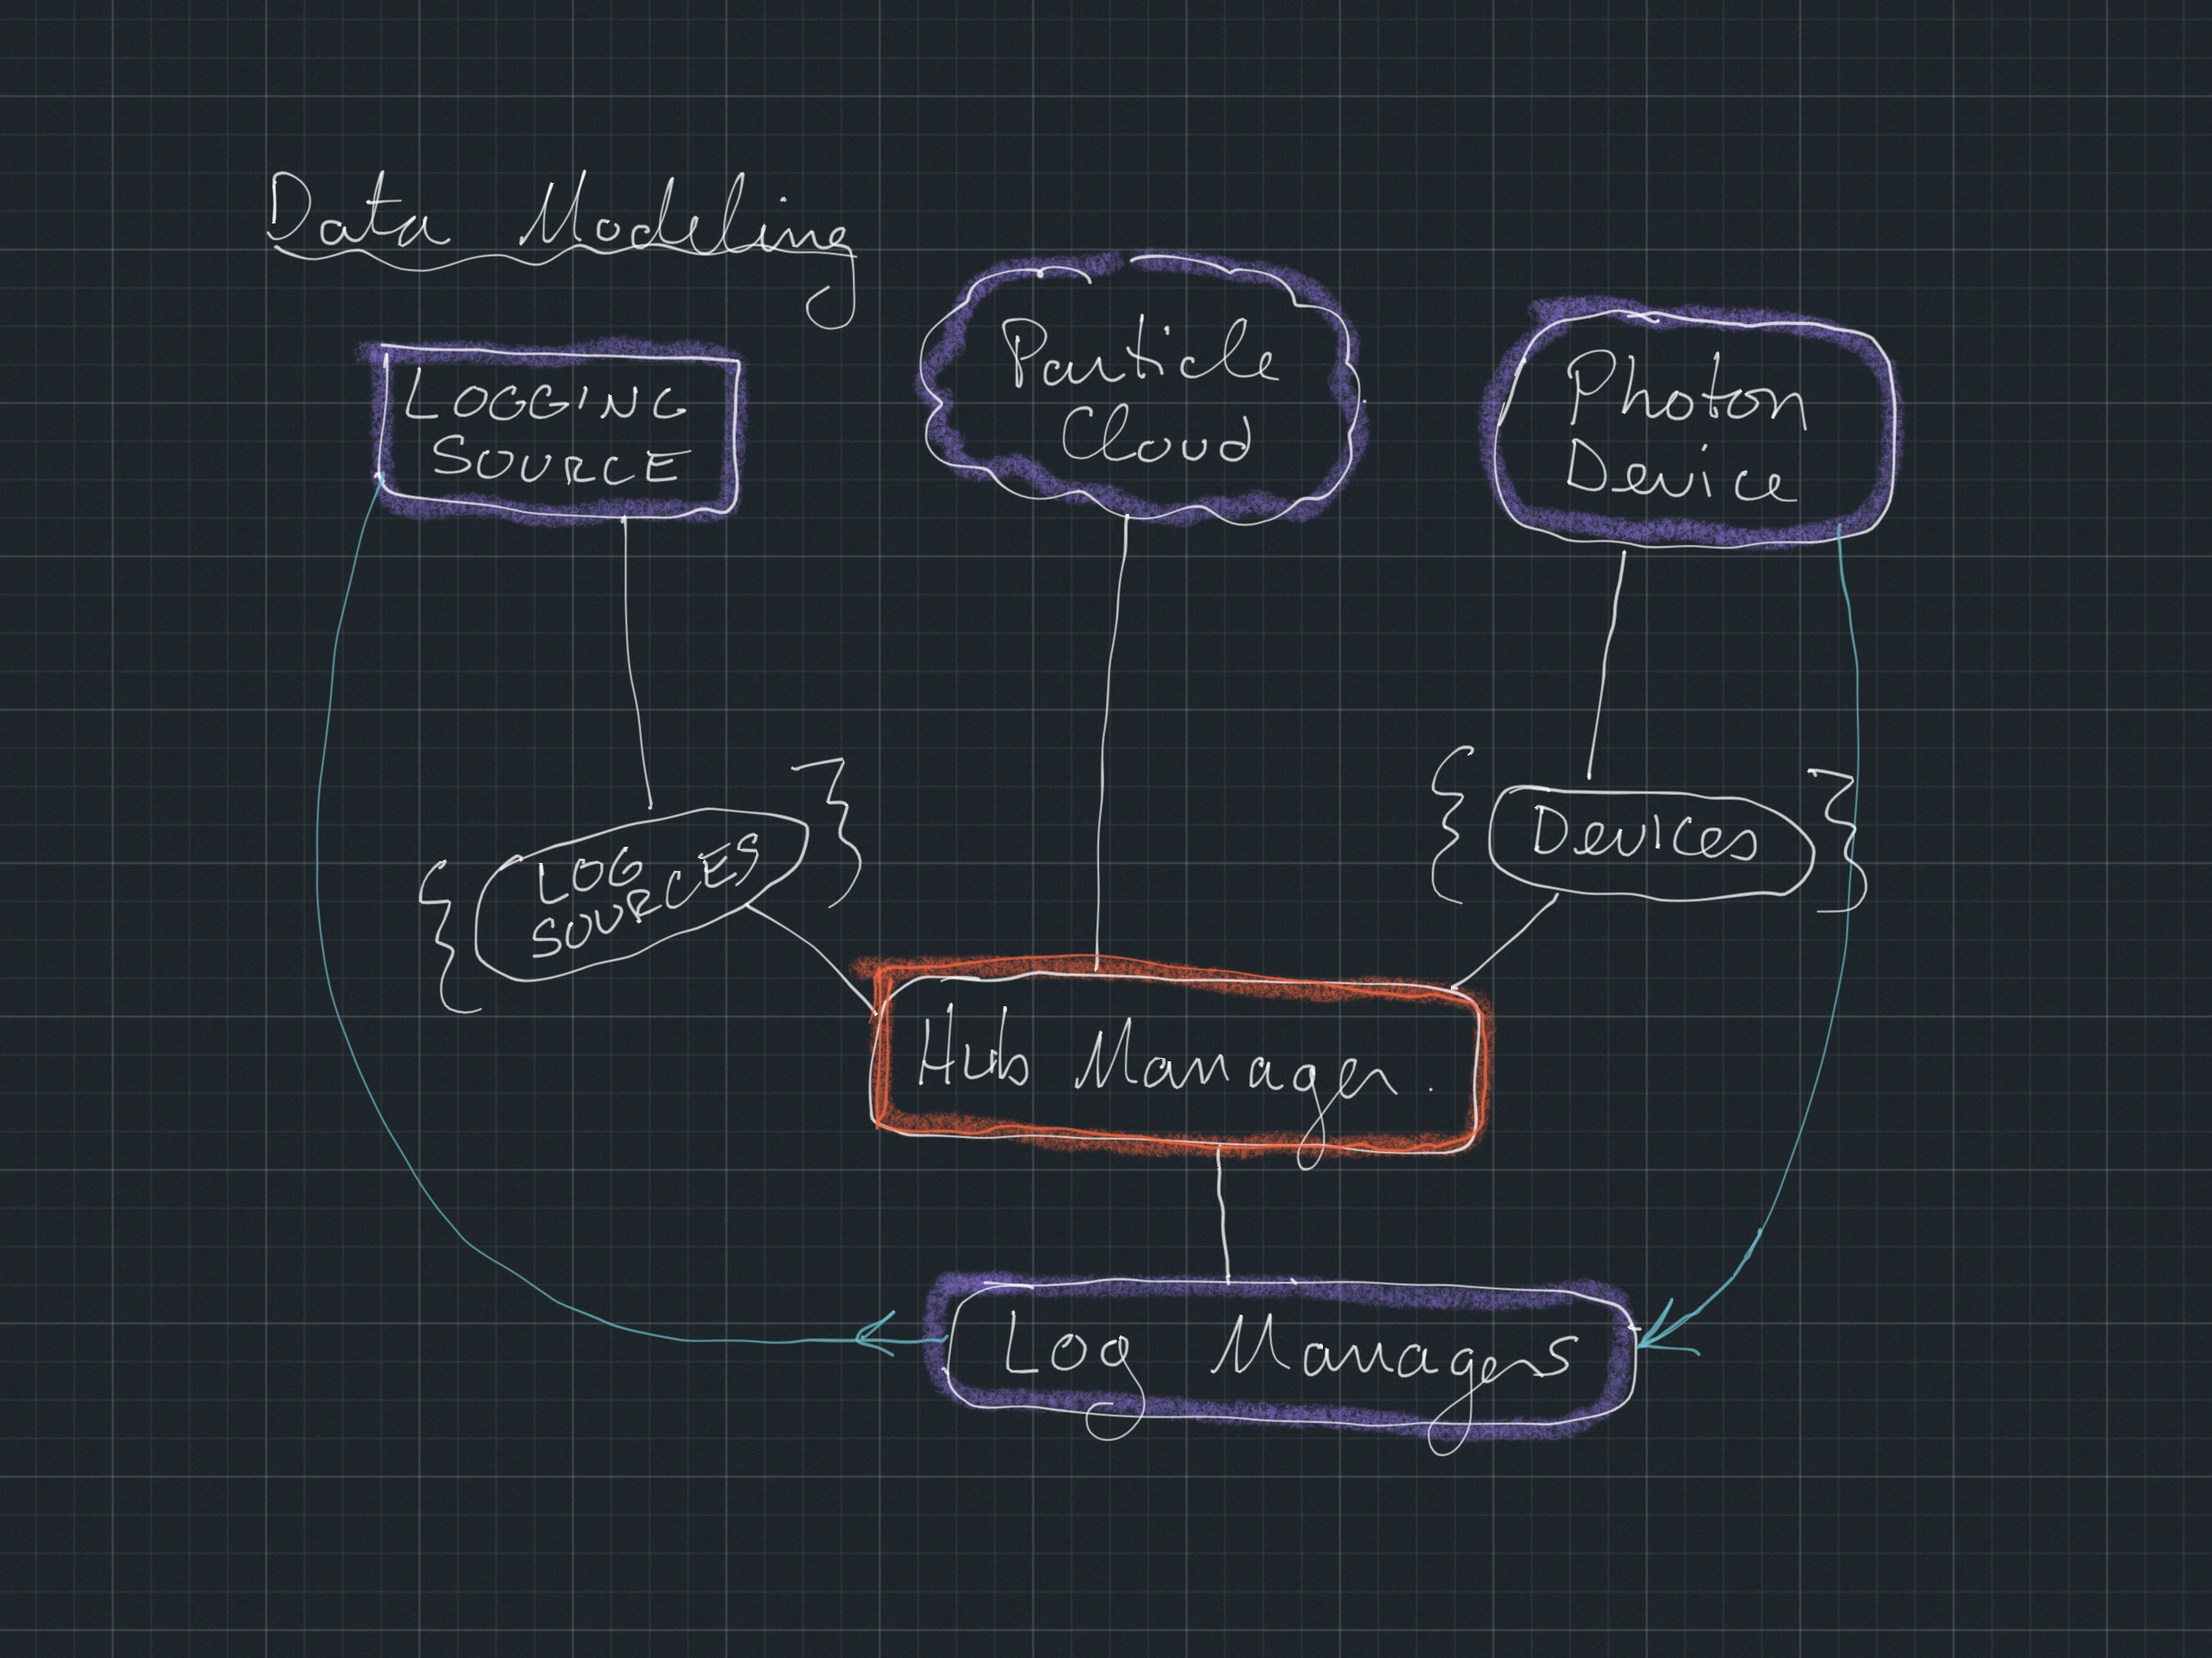 Data Modeling
LOGGING
SOURCE
Particle
Cloud
Photon
Device
LOG
SOURCES
Devices
Hub Manager.
Log Managers